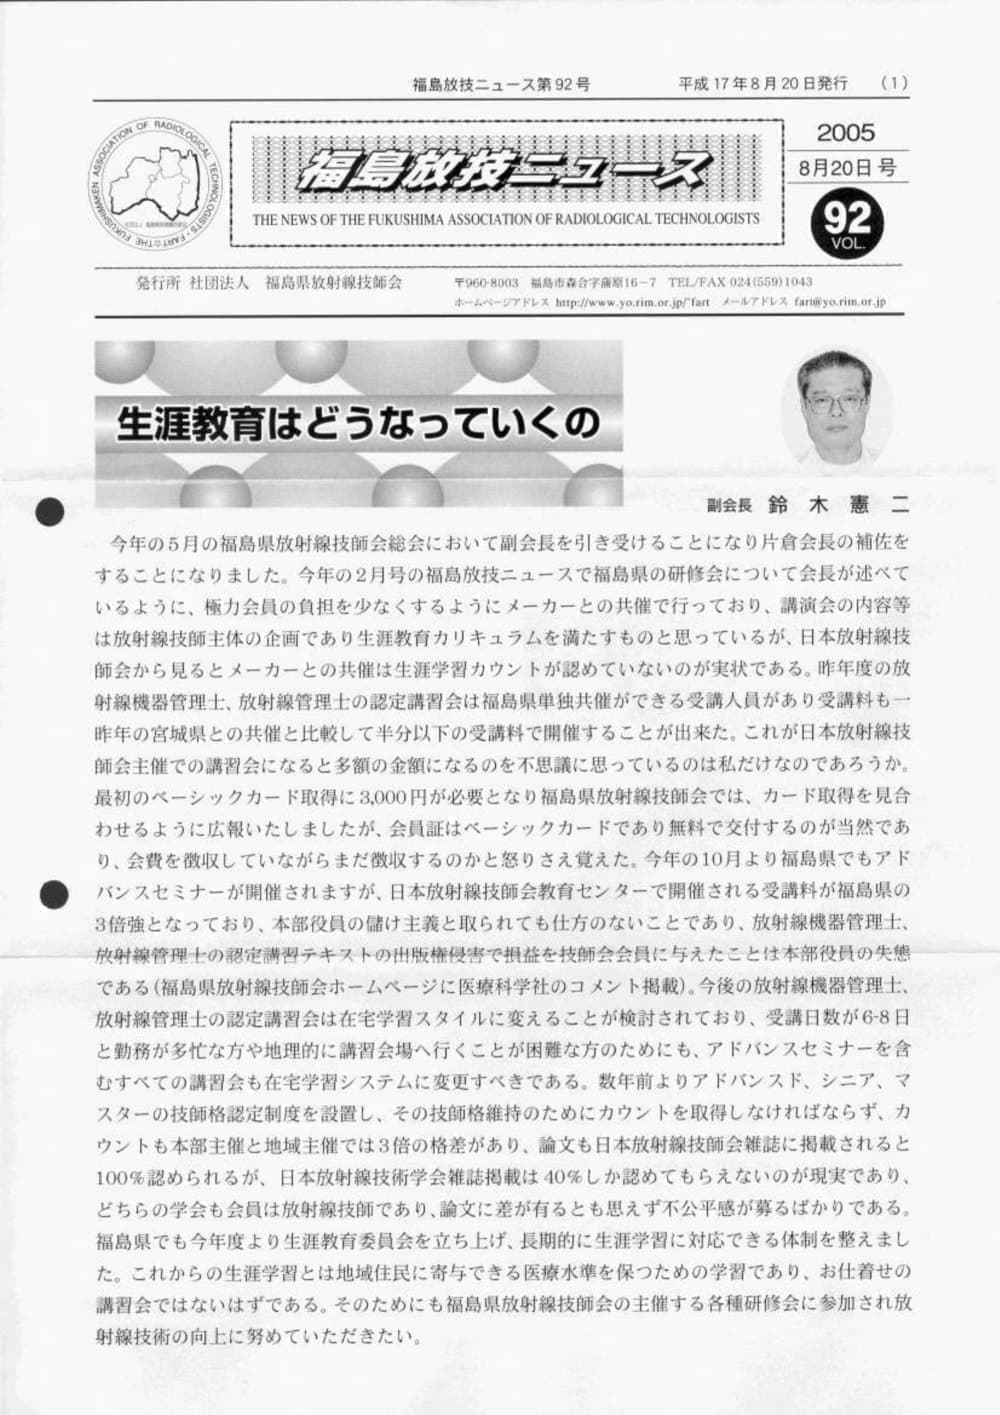 福島放技ニュース第92号 平成17年8月20日発行 (1)
THE FUKUSHIMAKEN ASSOCIATION OF RADIOLOGICAL TECHNOLOGISTS・FART☆
福島放技ニュース
THE NEWS OF THE FUKUSHIMA ASSOCIATION OF RADIOLOGICAL TECHNOLOGISTS
2005
8月20日号
92
VOL.
発行所 社団法人 福島県放射線技師会
〒960-8003 福島市森合字蒲原16−7 TEL/FAX 024(559)1043
ホームページアドレス http://www.yo.rim.or.jp/~fart メールアドレス fart@yo.rim.or.jp
生涯教育はどうなっていくの
副会長 鈴木憲二
今年の5月の福島県放射線技師会総会において副会長を引き受けることになり片倉会長の補佐を
することになりました。今年の2月号の福島放技ニュースで福島県の研修会について会長が述べて
いるように、極力会員の負担を少なくするようにメーカーとの共催で行っており、講演会の内容等
は放射線技師主体の企画であり生涯教育カリキュラムを満たすものと思っているが、日本放射線技
師会から見るとメーカーとの共催は生涯学習カウントが認めていないのが実状である。昨年度の放
射線機器管理士、放射線管理士の認定講習会は福島県単独共催ができる受講人員があり受講料も一
昨年の宮城県との共催と比較して半分以下の受講料で開催することが出来た。これが日本放射線技
師会主催での講習会になると多額の金額になるのを不思議に思っているのは私だけなのであろうか。
最初のベーシックカード取得に3,000円が必要となり福島県放射線技師会では、カード取得を見合
わせるように広報いたしましたが、会員証はベーシックカードであり無料で交付するのが当然であ
り、会費を徴収していながらまだ徴収するのかと怒りさえ覚えた。今年の10月より福島県でもアド
バンスセミナーが開催されますが、日本放射線技師会教育センターで開催される受講料が福島県の
3倍強となっており、本部役員の儲け主義と取られても仕方のないことであり、放射線機器管理士、
放射線管理士の認定講習テキストの出版権侵害で損益を技師会会員に与えたことは本部役員の失態
である(福島県放射線技師会ホームページに医療科学社のコメント掲載)。今後の放射線機器管理士、
放射線管理士の認定講習会は在宅学習スタイルに変えることが検討されており、受講日数が6-8日
と勤務が多忙な方や地理的に講習会場へ行くことが困難な方のためにも、アドバンスセミナーを含
むすべての講習会も在宅学習システムに変更すべきである。数年前よりアドバンスド、シニア、マ
スターの技師格認定制度を設置し、その技師格維持のためにカウントを取得しなければならず、カ
ウントも本部主催と地域主催では3倍の格差があり、論文も日本放射線技師会雑誌に掲載されると
100%認められるが、日本放射線技術学会雑誌掲載は40%しか認めてもらえないのが現実であり、
どちらの学会も会員は放射線技師であり、論文に差が有るとも思えず不公平感が募るばかりである。
福島県でも今年度より生涯教育委員会を立ち上げ、長期的に生涯学習に対応できる体制を整えまし
た。これからの生涯学習とは地域住民に寄与できる医療水準を保つための学習であり、お仕着せの
講習会ではないはずである。そのためにも福島県放射線技師会の主催する各種研修会に参加され放
射線技術の向上に努めていただきたい。